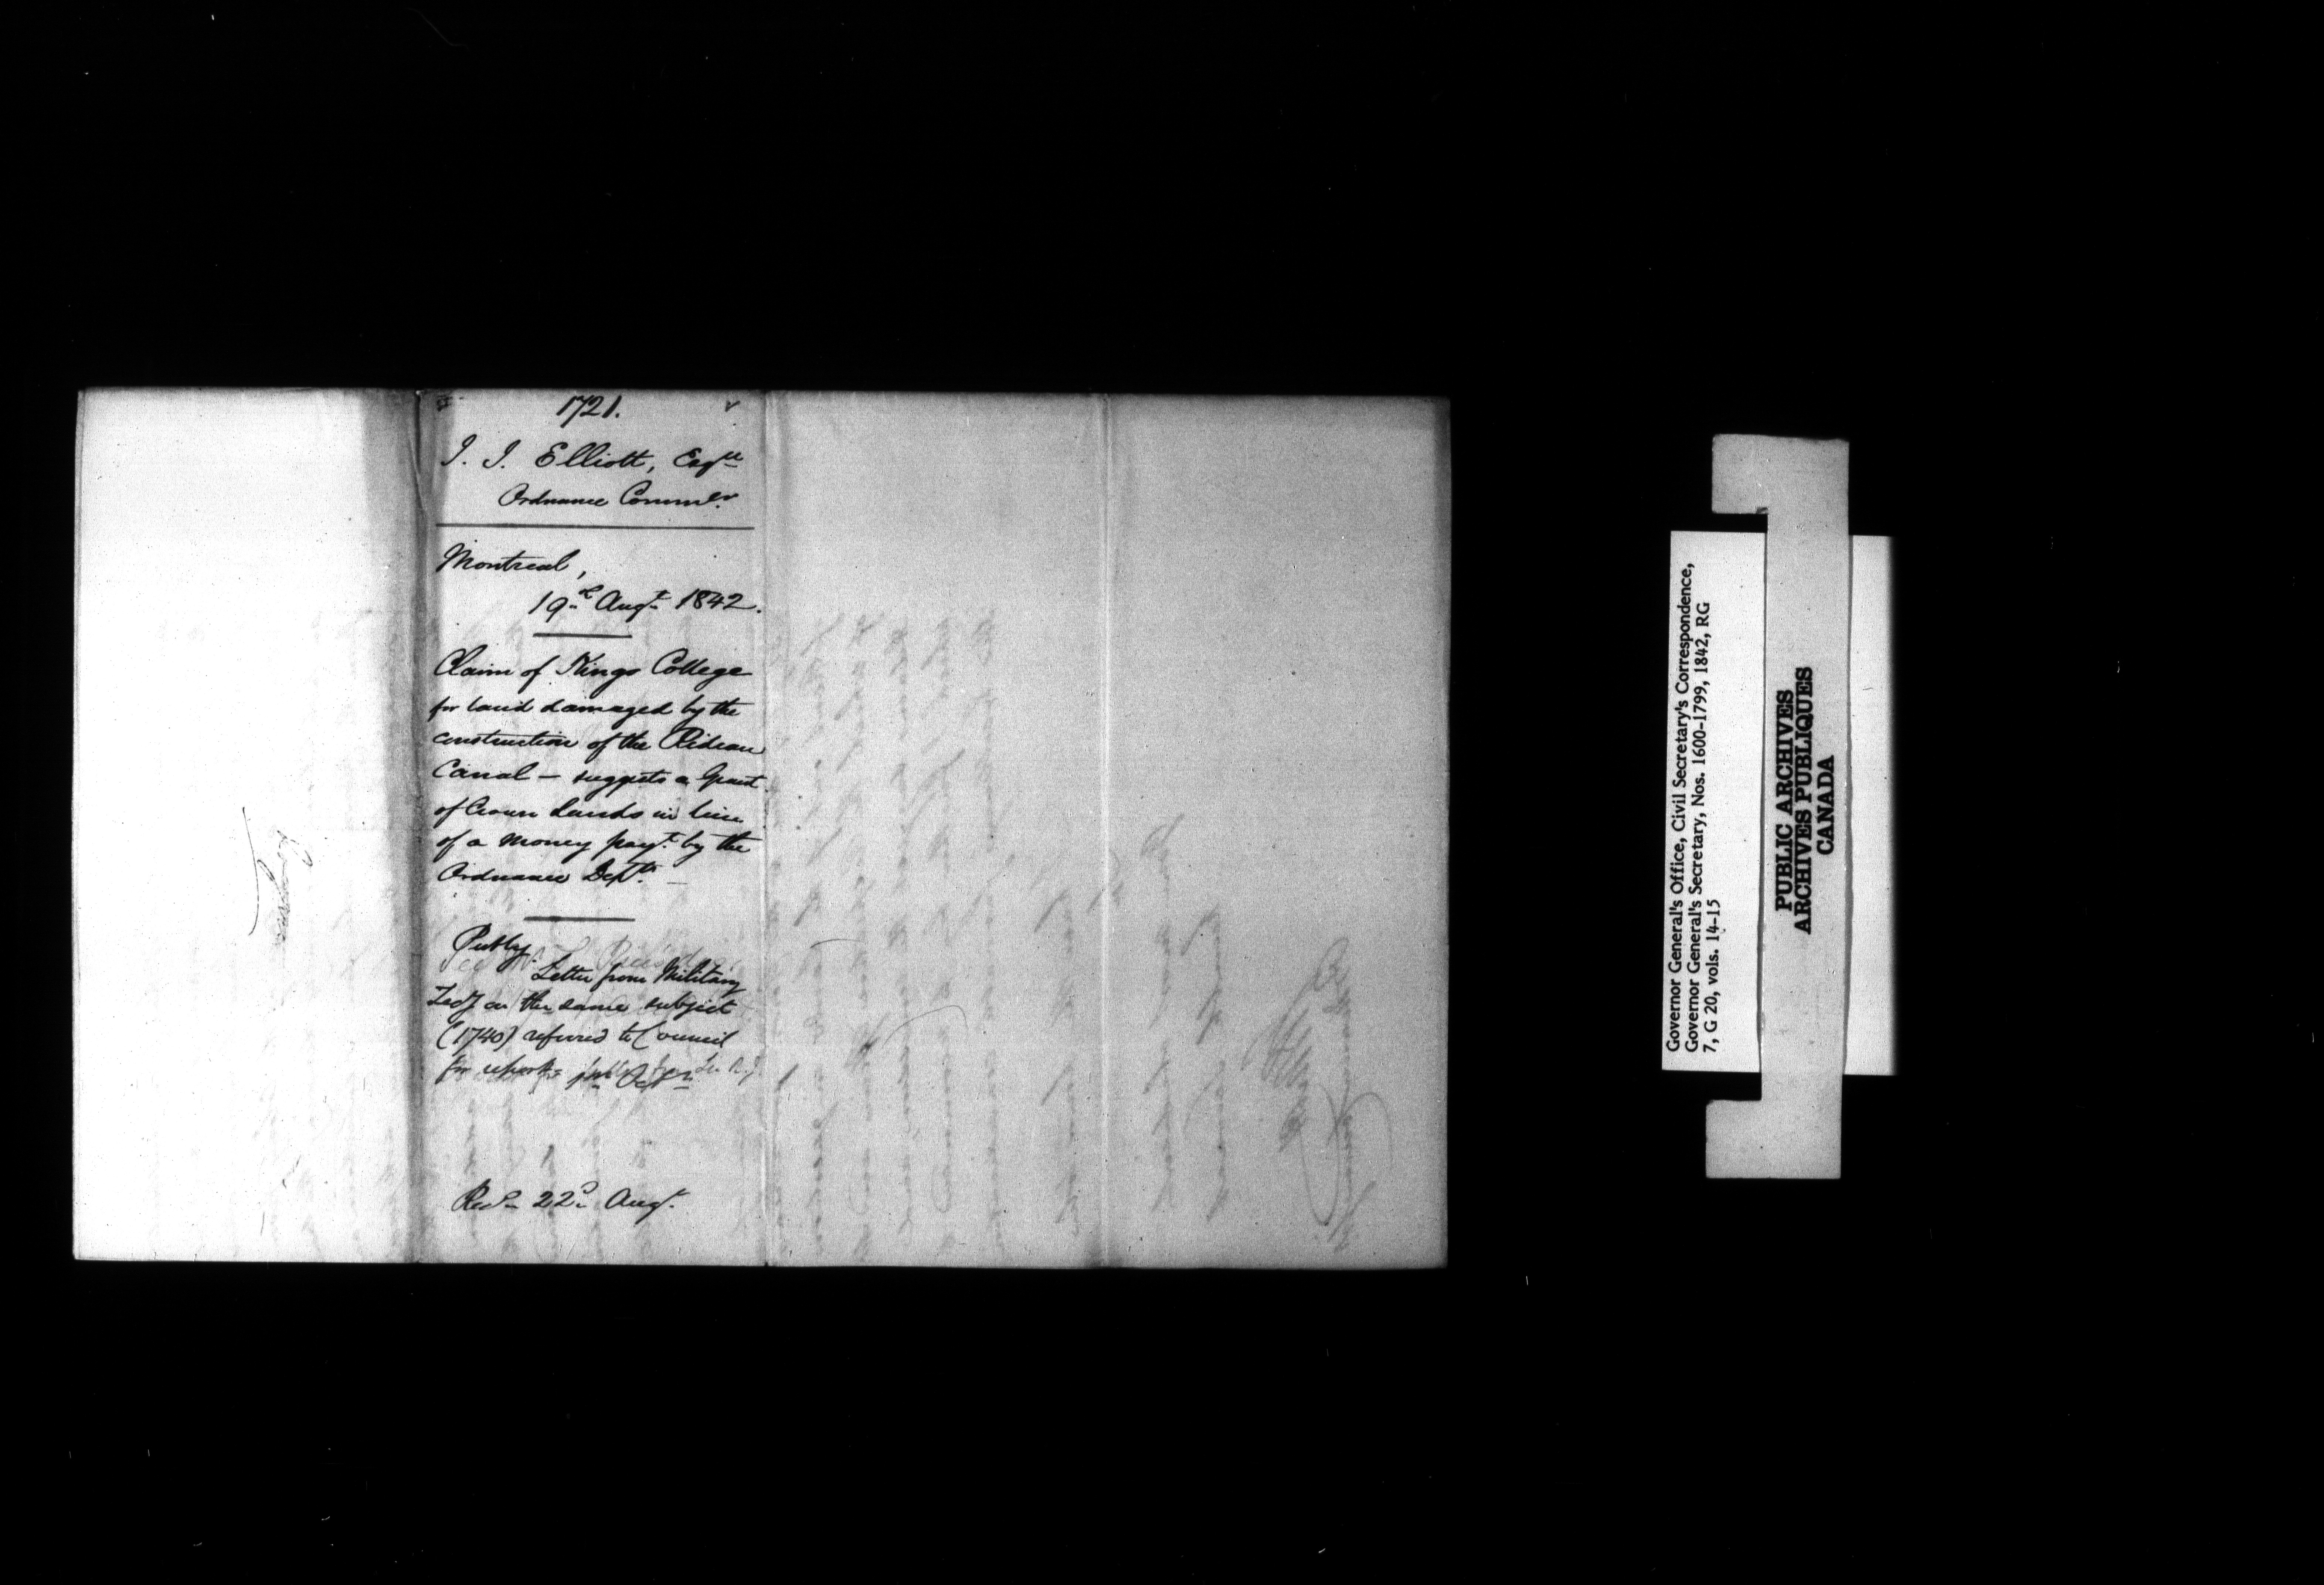 1721.
I. I. Elliott, Esqre
Ordnance Commr.
Montreal,
19th Augt 1842.
Claim of Kings College
for land damaged by the
construction of the Rideau
Canal — suggests a Grant
of Crown Lands in lieu
of a money payt. by the
Ordnance Dept. —
Letter from Military
Secy on the same subject
(1740) referred to Council
for report
Recd 22d Augt.
Governor General's Office, Civil Secretary's Correspondence,
Governor General's Secretary, Nos. 1600-1799, 1842, RG
7, G 20, vols. 14-15
PUBLIC ARCHIVES
ARCHIVES PUBLIQUES
CANADA